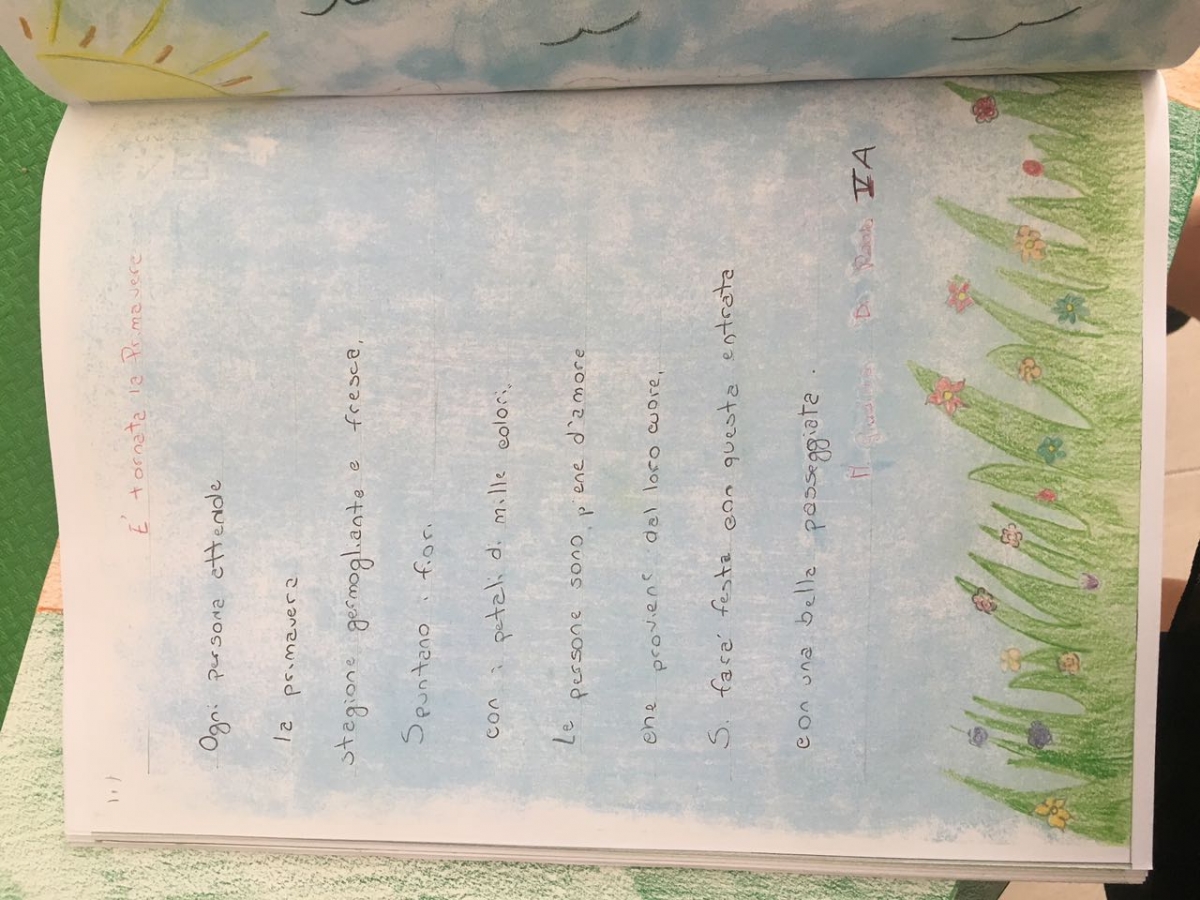 È tornata la Primavera
Ogni persona attende
la primavera
stagione germogliante e fresca,
Spuntano i fiori
con i petali di mille colori,
Le persone sono piene d'amore
che proviene dal loro cuore,
Si farà festa con questa entrata
con una bella passeggiata.
V A